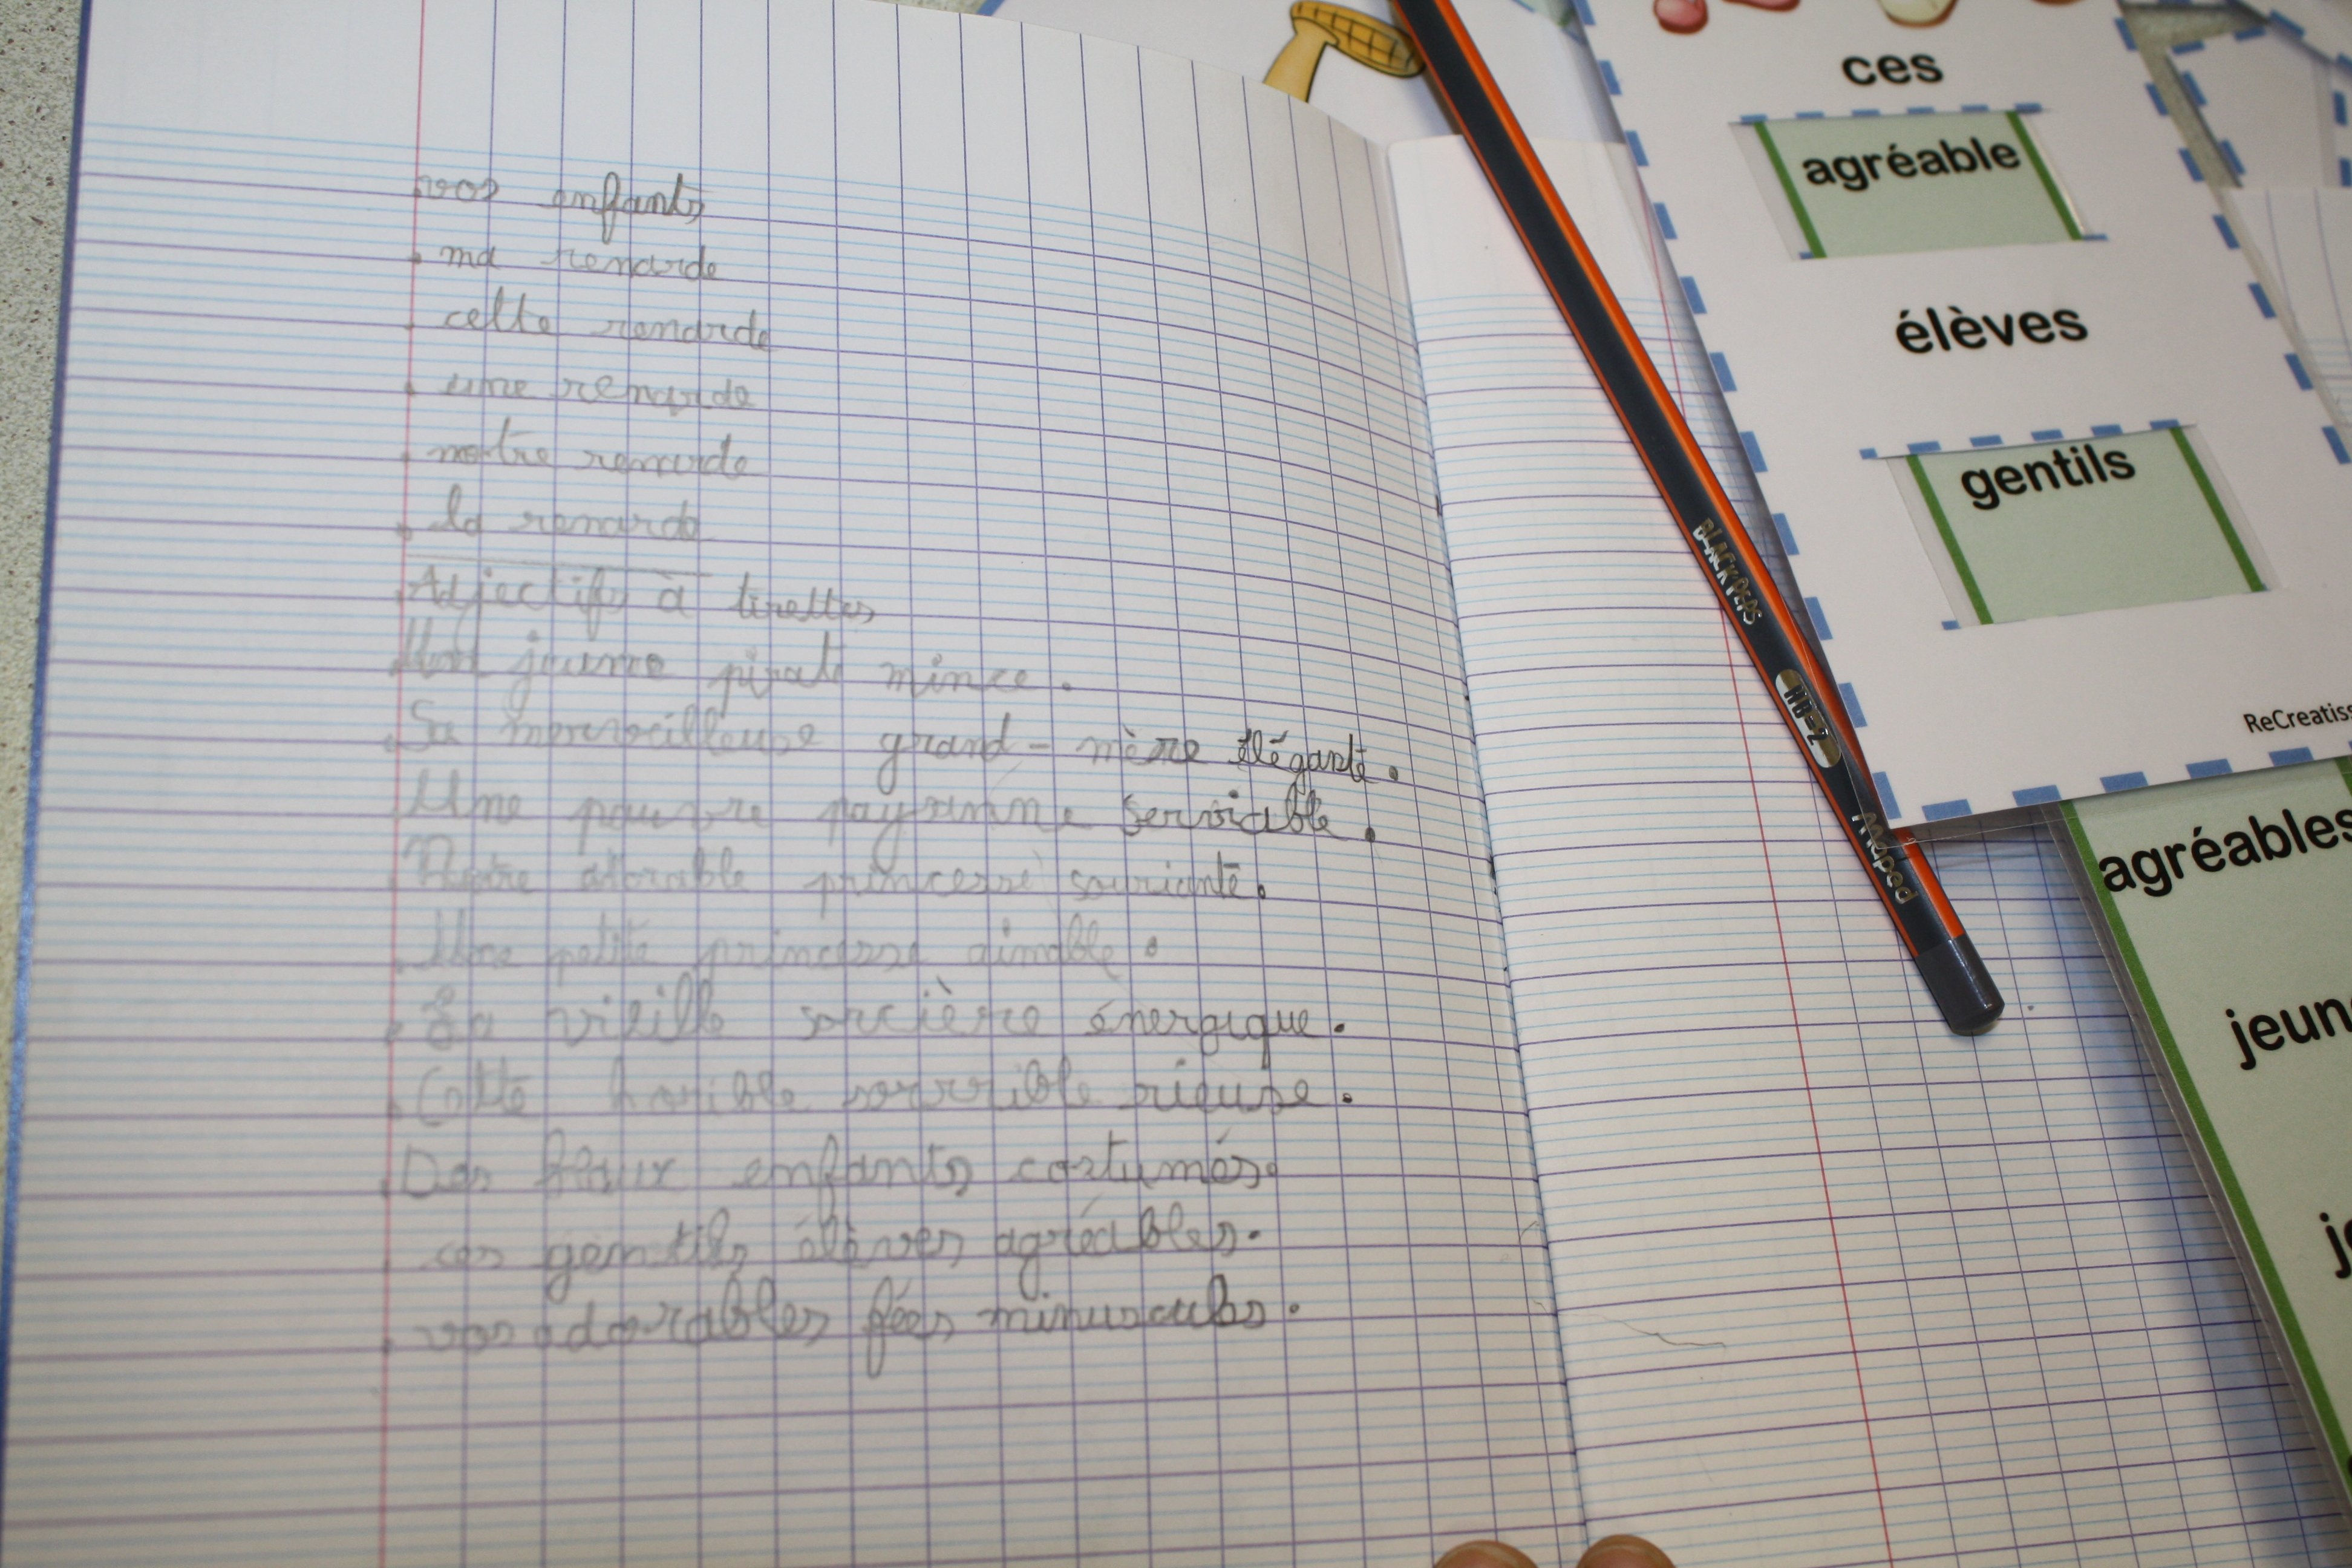 vos enfants
ma renarde
cette renarde
une renarde
notre renarde
la renarde
Adjectifs à tirettes
jeune pirate mince.
Sa merveilleuse grand-mère élégante.
Une pauvre paysanne serviable.
Notre adorable princesse souriante.
Une petite princesse aimable.
La vieille sorcière énergique.
Cette horrible rieuse.
Des enfants costumés.
ces gentils élèves agréables.
vos adorables fées minuscules.
ces
agréable
élèves
gentils
ReCreatis
BLACK'PEPS
HB=2
Maped
agréables
jeun